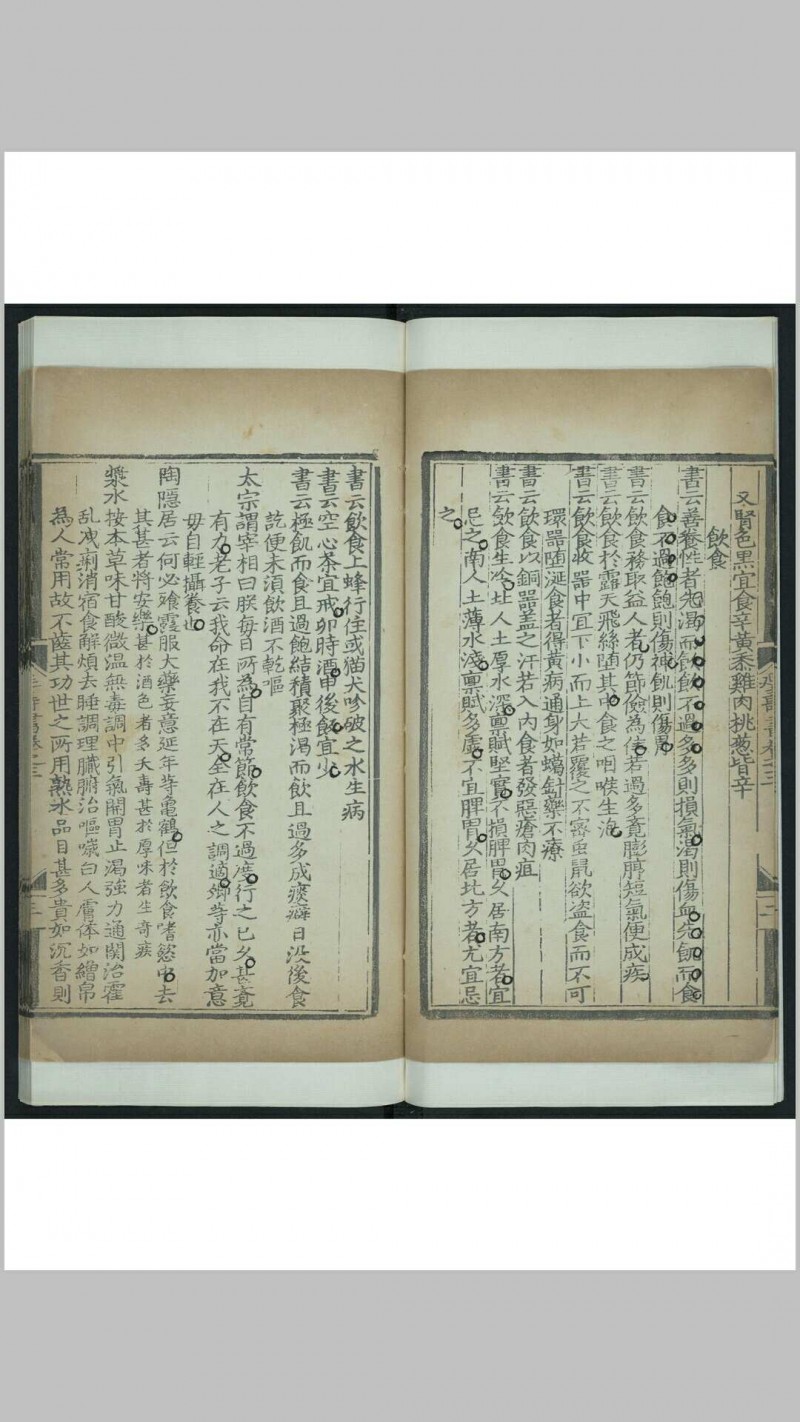 又腎色黒宜食辛黃黍雞肉桃葱皆辛
飲食
書云善養性者先渴而飲飲不過多多則損氣渴則傷血先飢而食
食不過飽飽則傷神飢則傷胃
書云飲食務取益人者仍節儉為佳若過多覺膨脝短氣便成疾
書云飲食於露天飛絲堕其中食之咽喉生泡
書云飲食收器中宜下小而上大若覆之不宻虫鼠欲盗食而不可
環器堕涎食者得黃病通身如蠟針藥不療
書云飲食以銅器盖之汗若入內食者發惡瘡肉疽
書云飲食生冷北人土厚水深禀賦堅實不損脾胃久居南方者宜
忌之南人土薄水淺禀賦多虛不宜脾胃久居北方者尤宜忌
之
書云飲食上蜂行住或猫犬吟破之水生病
書云空心茶宜戒卯時酒申後飯宜少
書云極飢而食且過飽結積聚極渴而飲且過多成痰癖日没後食
訖便未湏飲酒不乾嘔
太宗謂宰相曰朕每日所為自有常節飲食不過度行之已久甚覺
有力老子云我命在我不在天全在人之調適卿等亦當加意
毋自輕攝養也
陶隠居云何必飡霞服大藥妄意延年等亀鶴但於飲食嗜慾中去
其甚者將安樂甚於酒色者多夭壽甚於厚味者生奇疾
漿水按本草味甘酸微温無毒調中引氣開胃止渴強力通関治霍
乱洩痢消宿食解煩去睡調理臟腑治嘔噦白人膚体如繒帛
為人常用故不齒其功世之所用熟水品目甚多貴如沉香則